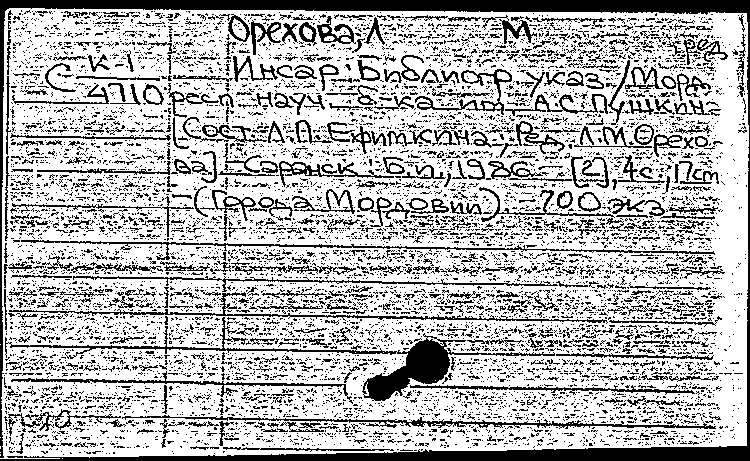 Орехова, Л М
ред.
С К-1 Инсар: Библиогр. указ. / Морд.
4710 респ. науч. б-ка им. А.С. Пушкина
[Сост. Л.П. Ефимкина; Ред. Л.М. Орехо-
ва] - Саранск: Б.и., 1986. - [2], 4с., 17см
- (Города Мордовии). - 700 экз.